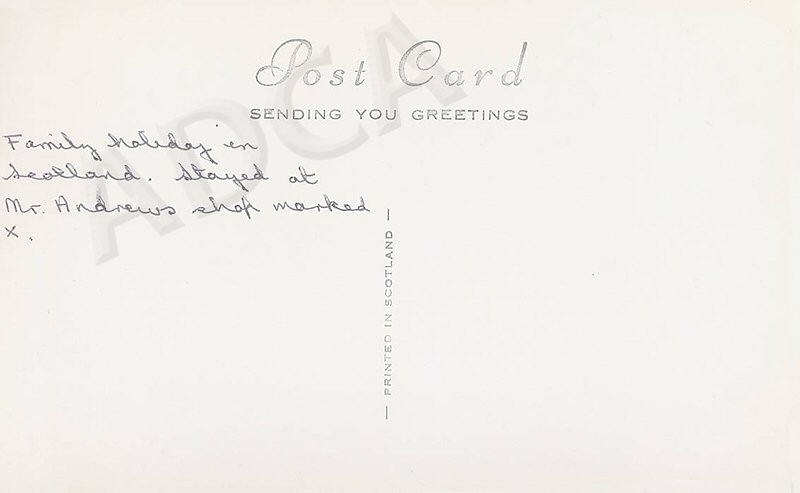 Post Card
SENDING YOU GREETINGS
ADCA
Family holiday in
Scotland. Stayed at
Mr. Andrews shop marked
x.
— PRINTED IN SCOTLAND —